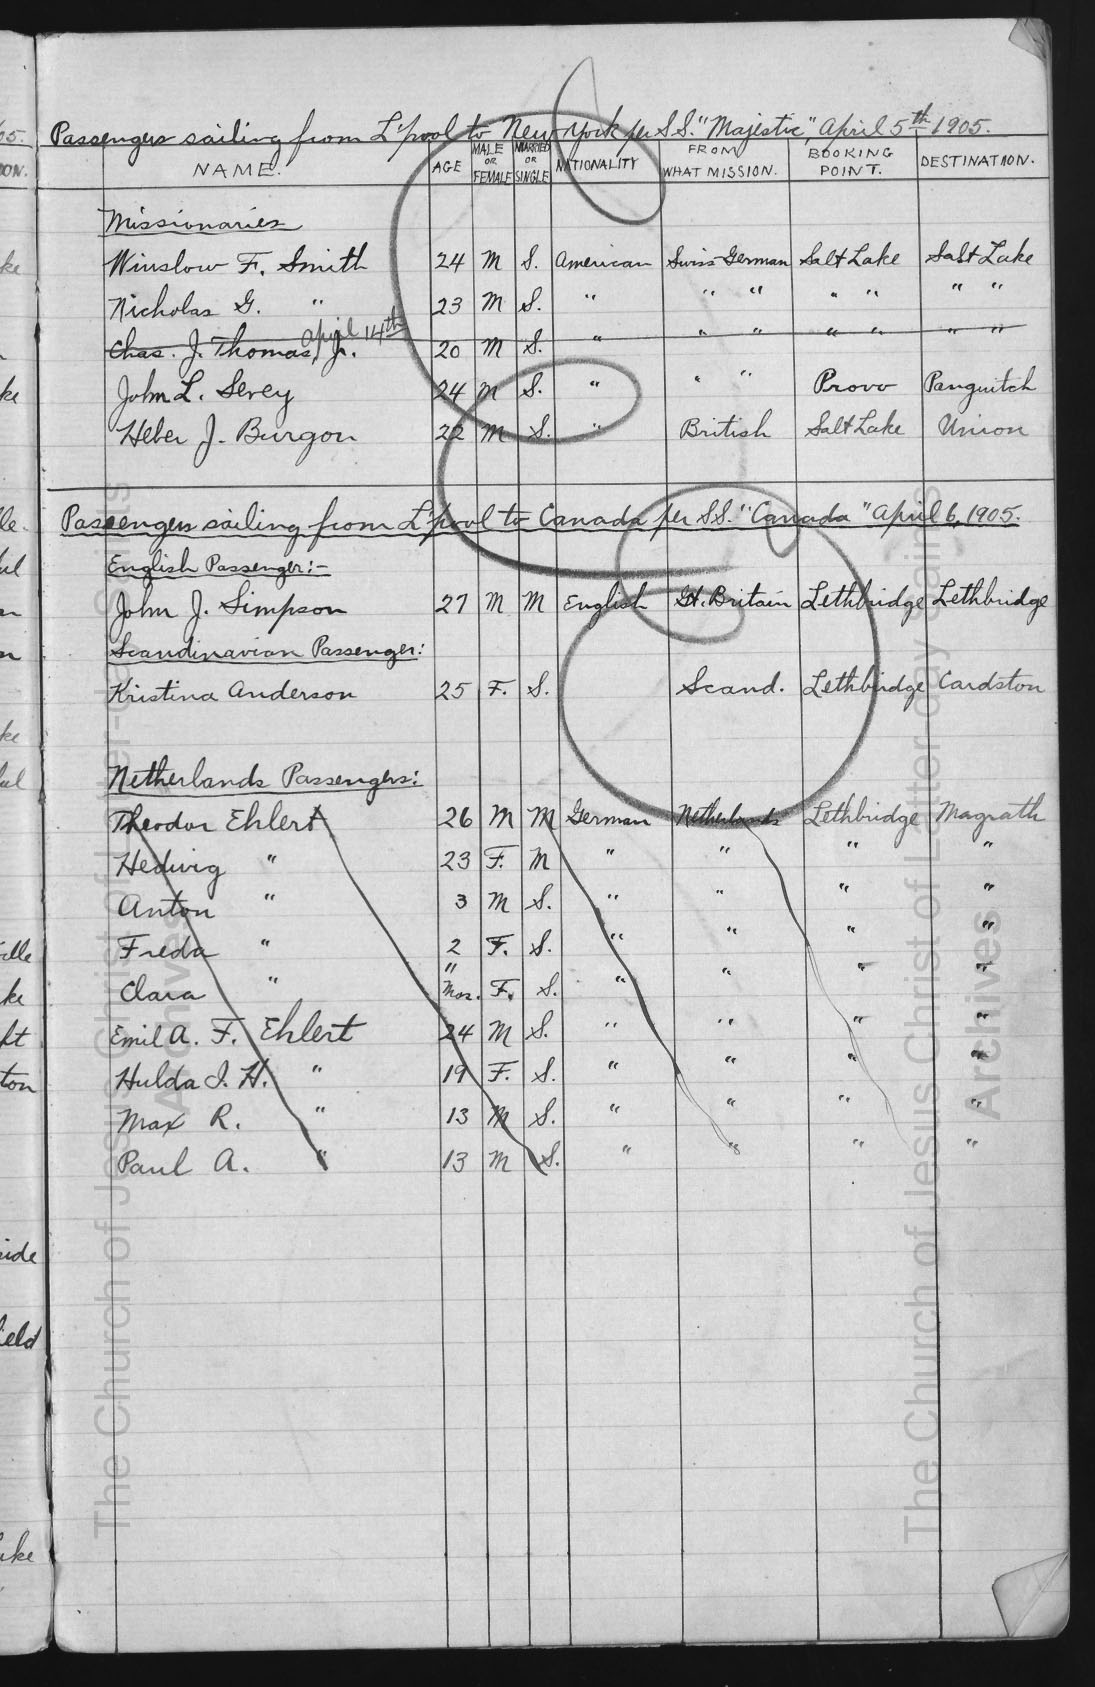 Passengers sailing from L'pool to New York per S.S. "Majestic," April 5th 1905.
NAME. AGE MALE OR FEMALE MARRIED OR SINGLE NATIONALITY FROM WHAT MISSION. BOOKING POINT. DESTINATION.
Missionaries
Winslow F. Smith 24 M S. American Swiss German Salt Lake Salt Lake
Nicholas G. " 23 M S. " " " " " " "
april 14th
Chas. J. Thomas, Jr. 20 M S. " " " " " " "
John L. Sevey 24 M S. " " " Provo Panguitch
Heber J. Burgon 22 M S. " British Salt Lake Union
Passengers sailing from L'pool to Canada per S.S. "Canada" April 6, 1905.
English Passenger:-
John J. Simpson 27 M M English Gt. Britain Lethbridge Lethbridge
Scandinavian Passenger:
Kristina Anderson 25 F. S. Scand. Lethbridge Cardston
Netherlands Passengers:
Theodor Ehlert 26 M M German Netherlands Lethbridge Magrath
Hedwig " 23 F. M " " " "
Anton " 3 M S. " " " "
Freda " 2 F. S. " " " "
Clara " " Mos. F. S. " " " "
Emil A. F. Ehlert 24 M S. " " " "
Hulda I. H. " 19 F. S. " " " "
Max R. " 13 M S. " " " "
Paul A. " 13 M S. " " " "
The Church of Jesus Christ of Latter-day Saints
Archives
The Church of Jesus Christ of Latter-day Saints
Archives